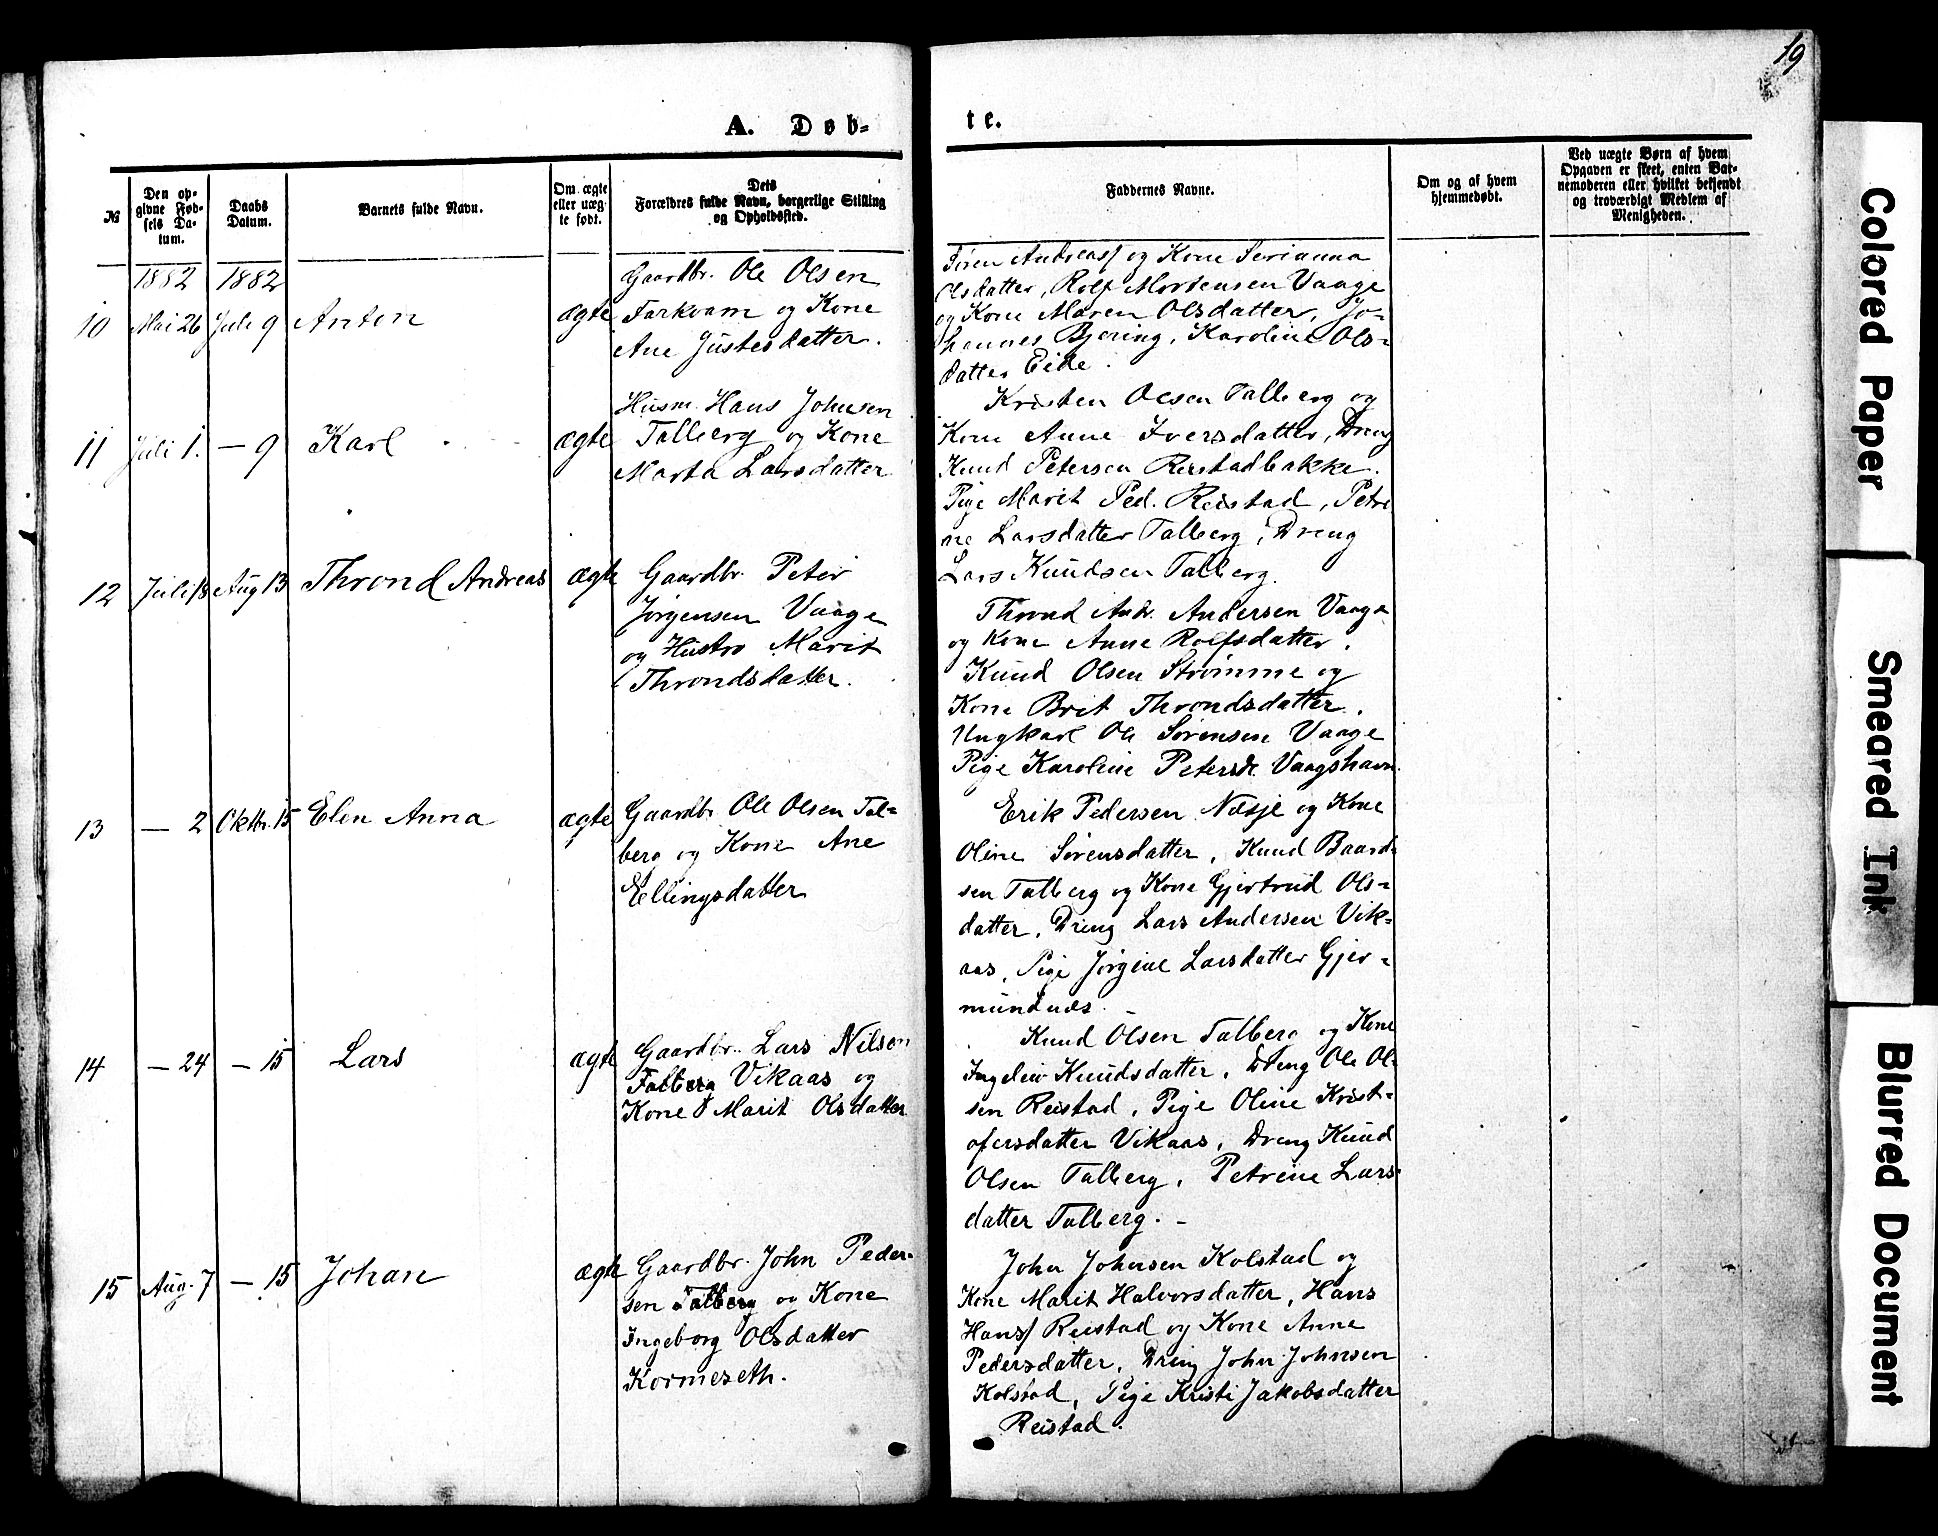 19
A. Døb-
te.
№
Den op-
givne Fød-
sels Da-
tum.
Daabs
Datum.
Barnets fulde Navn.
Om ægte
eller uæg-
te født.
Dets
Forældres fulde Navn, borgerlige Stilling
og Opholdssted.
Faddernes Navne.
Om og af hvem
hjemmedøbt.
Ved uægte Børn af hvem
Opgaven er skeet, enten Bar-
nemoderen eller hvilket bekjendt
og troværdigt Medlem af
Menigheden.
1882 1882
10 Mai 26 Juli 9 Anton ægte
Gaardbr. Ole Olsen
Farkvam og Kone
Ane Justesdatter.
Søren Andreass og Kone Serianna
Olsdatter, Rolf Mortensen Vaage
og Kone Maren Olsdatter, Jo-
hannes Bjering, Karoline Ols-
datter Eide.
11 Juli 1. — 9 Karl ægte
Husm. Hans Johnsen
Talberg og Kone
Marta Larsdatter
Kristen Olsen Talberg og
Kone Anne Iversdatter, Dreng
Knud Petersen Reistadbakke.
Pige Marit Ped. Reistad, Petri
ne Larsdatter Talberg, Dreng
Lars Knudsen Talberg.
12 Juli 18 Aug 13 Thrond Andreas ægte
Gaardbr. Peter
Jørgensen Vaage
og Hustro Marit
Throndsdatter.
Thrond Andr. Andersen Vaage
og Kone Anne Rolfsdatter.
Knud Olsen Strømme og
Kone Brit Throndsdatter.
Ungkarl Ole Sørensen Vaage
Pige Karoline Petersd. Vaagshavn.
13 — 2 Oktbr. 15 Elen Anna ægte
Gaardbr Ole Olsen Tal-
berg og Kone Ane
Ellingsdatter
Erik Pedersen Næsje og Kone
Oline Sørensdatter, Knud Baard-
sen Talberg og Kone Gjertrud Ols-
datter, Dreng Lars Andersen Vik-
aas, Pige Jørgine Larsdatter Gjer-
mundnæs.
14 — 24 — 15 Lars ægte
Gaardbr. Lars Nilsen
Talberg Vikaas og
Kone Marit Olsdatter
Knud Olsen Talberg og Kone
Ingeleiv Knudsdatter, Dreng Ole Ol-
sen Reistad, Pige Oline Krist-
ofersdatter Vikaas, Dreng Knud
Olsen Talberg, Petrine Lars-
datter Talberg. -
15 Aug. 7 — 15 Johan ægte
Gaardbr. John Peder-
sen Talberg og Kone
Ingeborg Olsdatter
Kormeseth.
John Johnsen Kolstad og
Kone Marit Halvorsdatter, Hans
Hanss Reistad og Kone Anne
Pedersdatter, Dreng John Johnsen
Kolstad, Pige Kristi Jakobsdatter
Reistad.
Colored Paper
Smeared Ink
Blurred Document